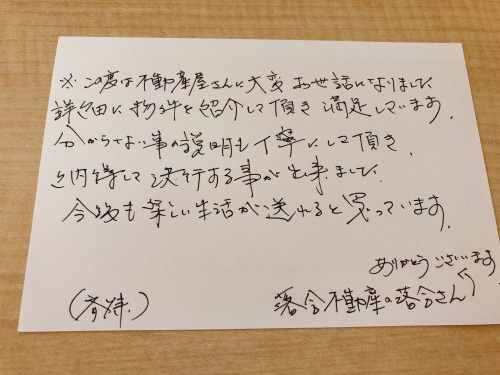 ※この度は不動産屋さんに大変お世話になりました。
詳細に物件を紹介して頂き満足しています。
分からない事の説明も丁寧にして頂き、
納得して決行する事が出来ました。
今後も楽しい生活が送れると思っています。
ありがとうございます
落合不動産の落合さん